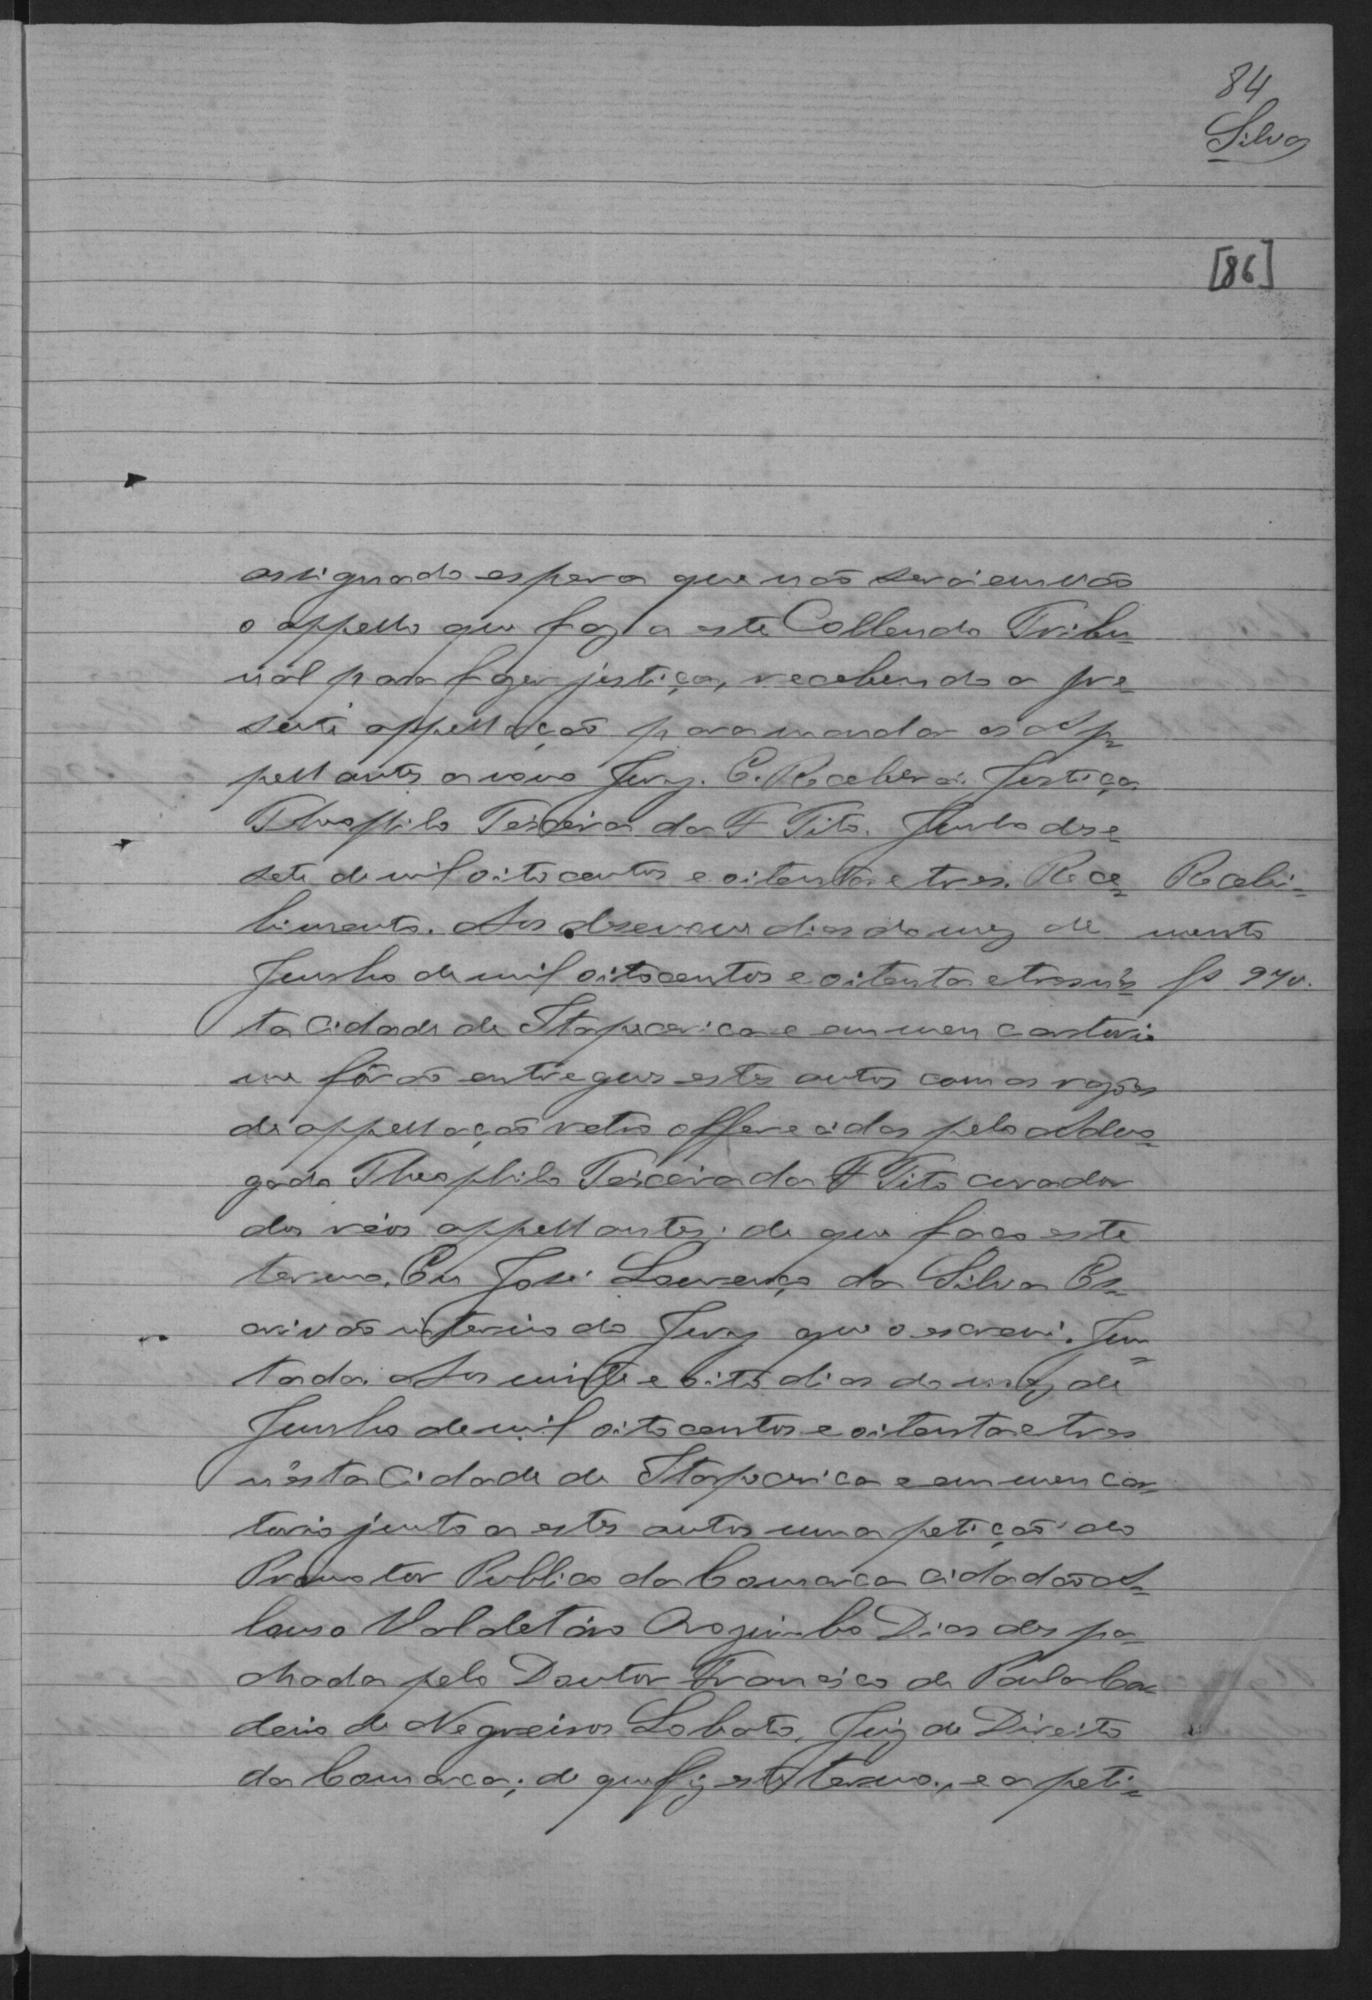 84
Silva
[86]
assignado espera que não será em vão
o appello que faz a este Collendo Tribu=
nal para fazer justiça, recebendo a pre=
sente appellação para mandar os Ap=
pellantes a novo Jury. E. Receberá Justiça
Theophilo Teixeira da F Tito. Junho dese=
sete de mil oitocentos e oitenta e tres. Rece=
bimento. Aos desenove dias do mez de
Junho de mil oitocentos e oitenta e tres n'es=
ta Cidade de Itapecerica e em meu cartorio
me fôrão entregues estes autos com as razões
de appellação retro offerecidas pelo Advo=
gado Theophilo Teixeira da F Tito curador
dos réos appellantes; de que faço este
termo. Eu José Lourenço da Silva Es=
crivão interino do Jury que o escrevi. Jun=
tada. Aos vinte e oito dias do mez de
Junho de mil oitocentos e oitenta e tres
n'esta Cidade de Itapecerica e em meu car=
torio junto a estes autos uma petição do
Promotor Publico da Comarca cidadão A=
lonso Valdetáro Orozimbo Dias despa=
chada pelo Doutor Francisco de Paula Cor=
deiro de Negreiros Lobato, Juiz de Direito
da Comarca; de que fiz este termo, e a peti=
Recebi=
mento
fs 97v.